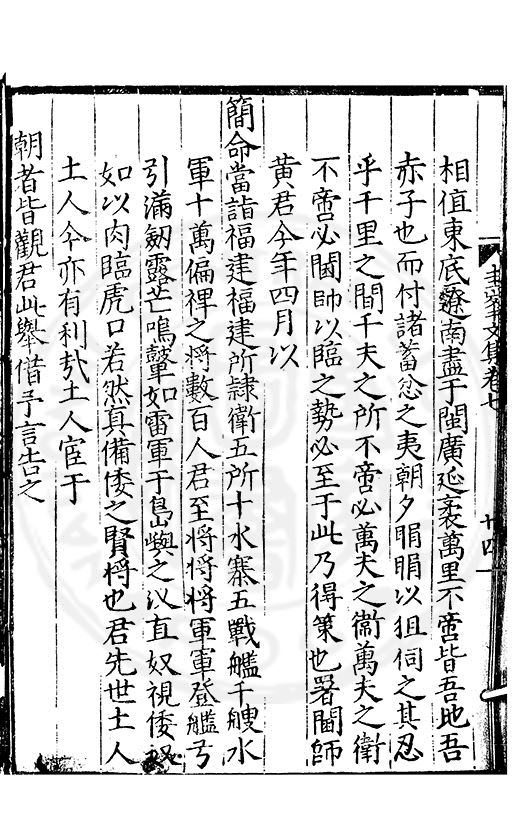 相值東底遼南盡于閩廣延袤萬里不啻皆吾地吾
赤子也而付諸蓄忿之夷朝夕睊睊以狙伺之其忍
乎千里之間千夫之所不啻必萬夫之衞萬夫之衛
不啻必閫帥以臨之勢必至于此乃得策也署閫師
黃君今年四月以
簡命當詣福建福建所隸衛五所十水寨五戰艦千艘水
軍十萬偏裨之將數百人君至將將將軍軍登艦弓
引滿劒露芒鳴鼙如雷軍于島嶼之以直奴視倭奴
如以肉臨虎口若然真備倭之賢將也君先世土人
土人今亦有利㢤土人宦于
朝者皆觀君此舉借予言告之
文集卷七
廿四